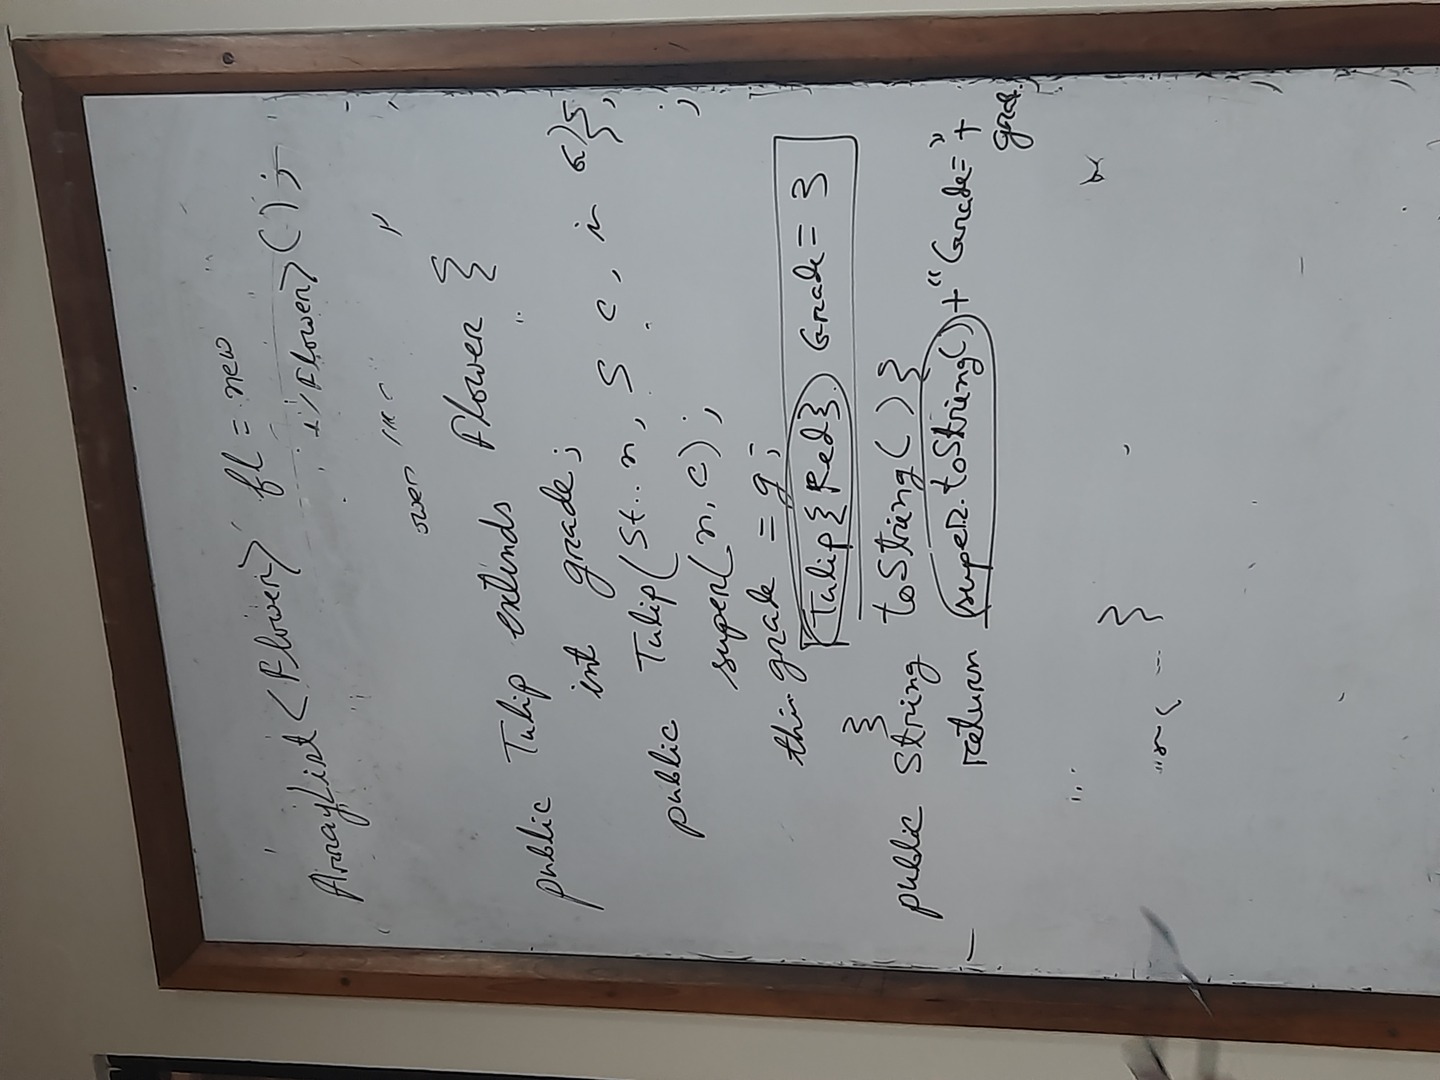 ArrayList<Flower> fl = new
Flower>();
public Tulip extends Flower {
int grade;
public Tulip(St.. n, S c, in G){
super(n, c);
this.grade = g;
Tulip{Red}. Grade= 3
}
public String toString(){
return super.toString()+"Grade="+
}